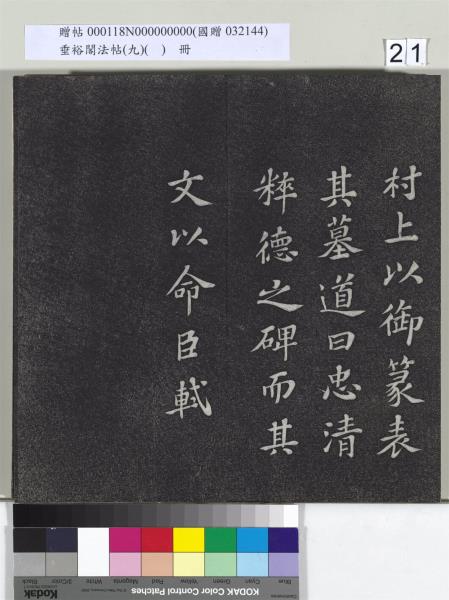 贈帖 000118N000000000(國贈 032144)
垂裕閣法帖(九)( ) 冊
21
村上以御篆表
其墓道曰忠清
粹德之碑而其
文以命臣軾
Blue Cyan Green Yellow Red Magenta White 3/Color Black
Kodak KODAK Color Control Patches